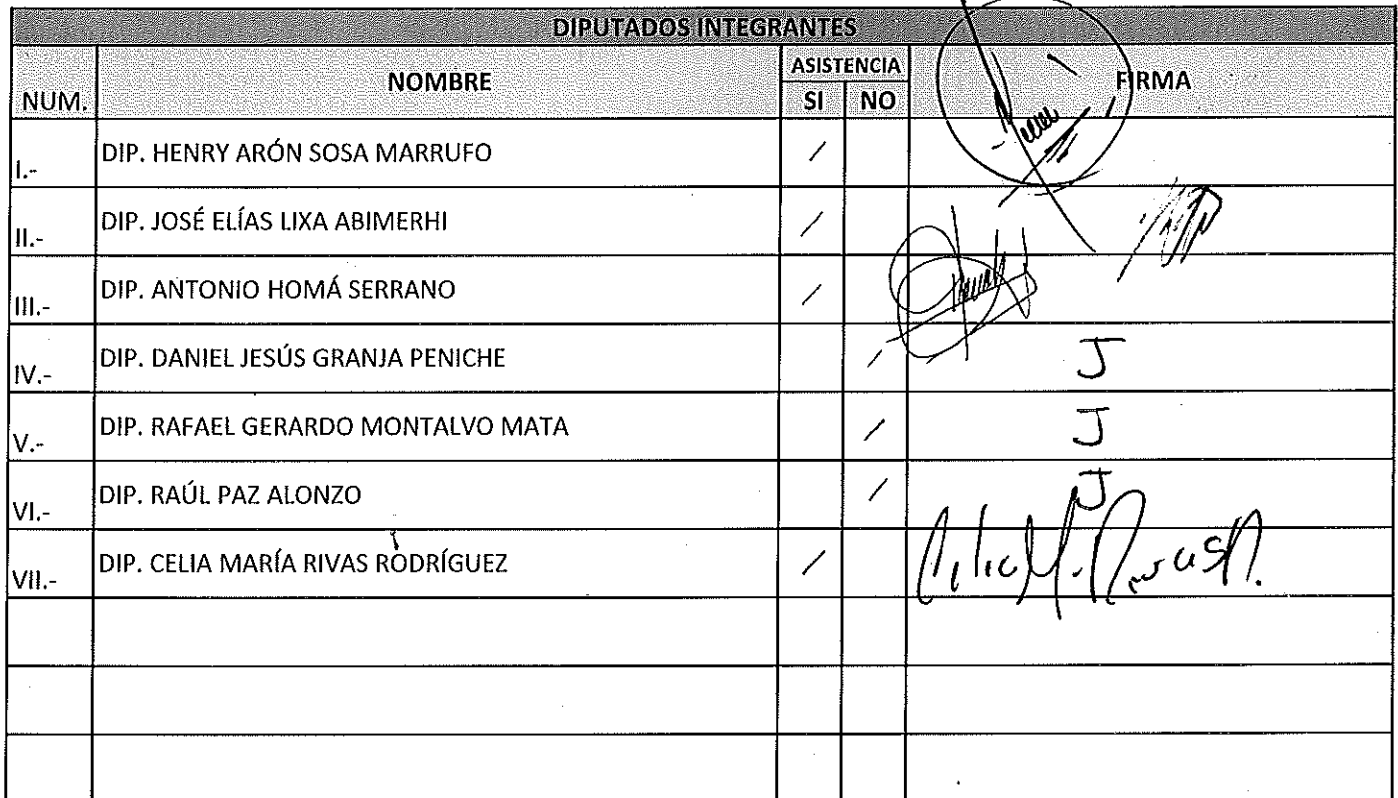 DIPUTADOS INTEGRANTES
NUM. NOMBRE ASISTENCIA FIRMA
SI NO
I.- DIP. HENRY ARÓN SOSA MARRUFO /
II.- DIP. JOSÉ ELÍAS LIXA ABIMERHI /
III.- DIP. ANTONIO HOMÁ SERRANO /
IV.- DIP. DANIEL JESÚS GRANJA PENICHE / J
V.- DIP. RAFAEL GERARDO MONTALVO MATA / J
VI.- DIP. RAÚL PAZ ALONZO / J
VII.- DIP. CELIA MARÍA RIVAS RODRÍGUEZ / Celia M. Rivas R.